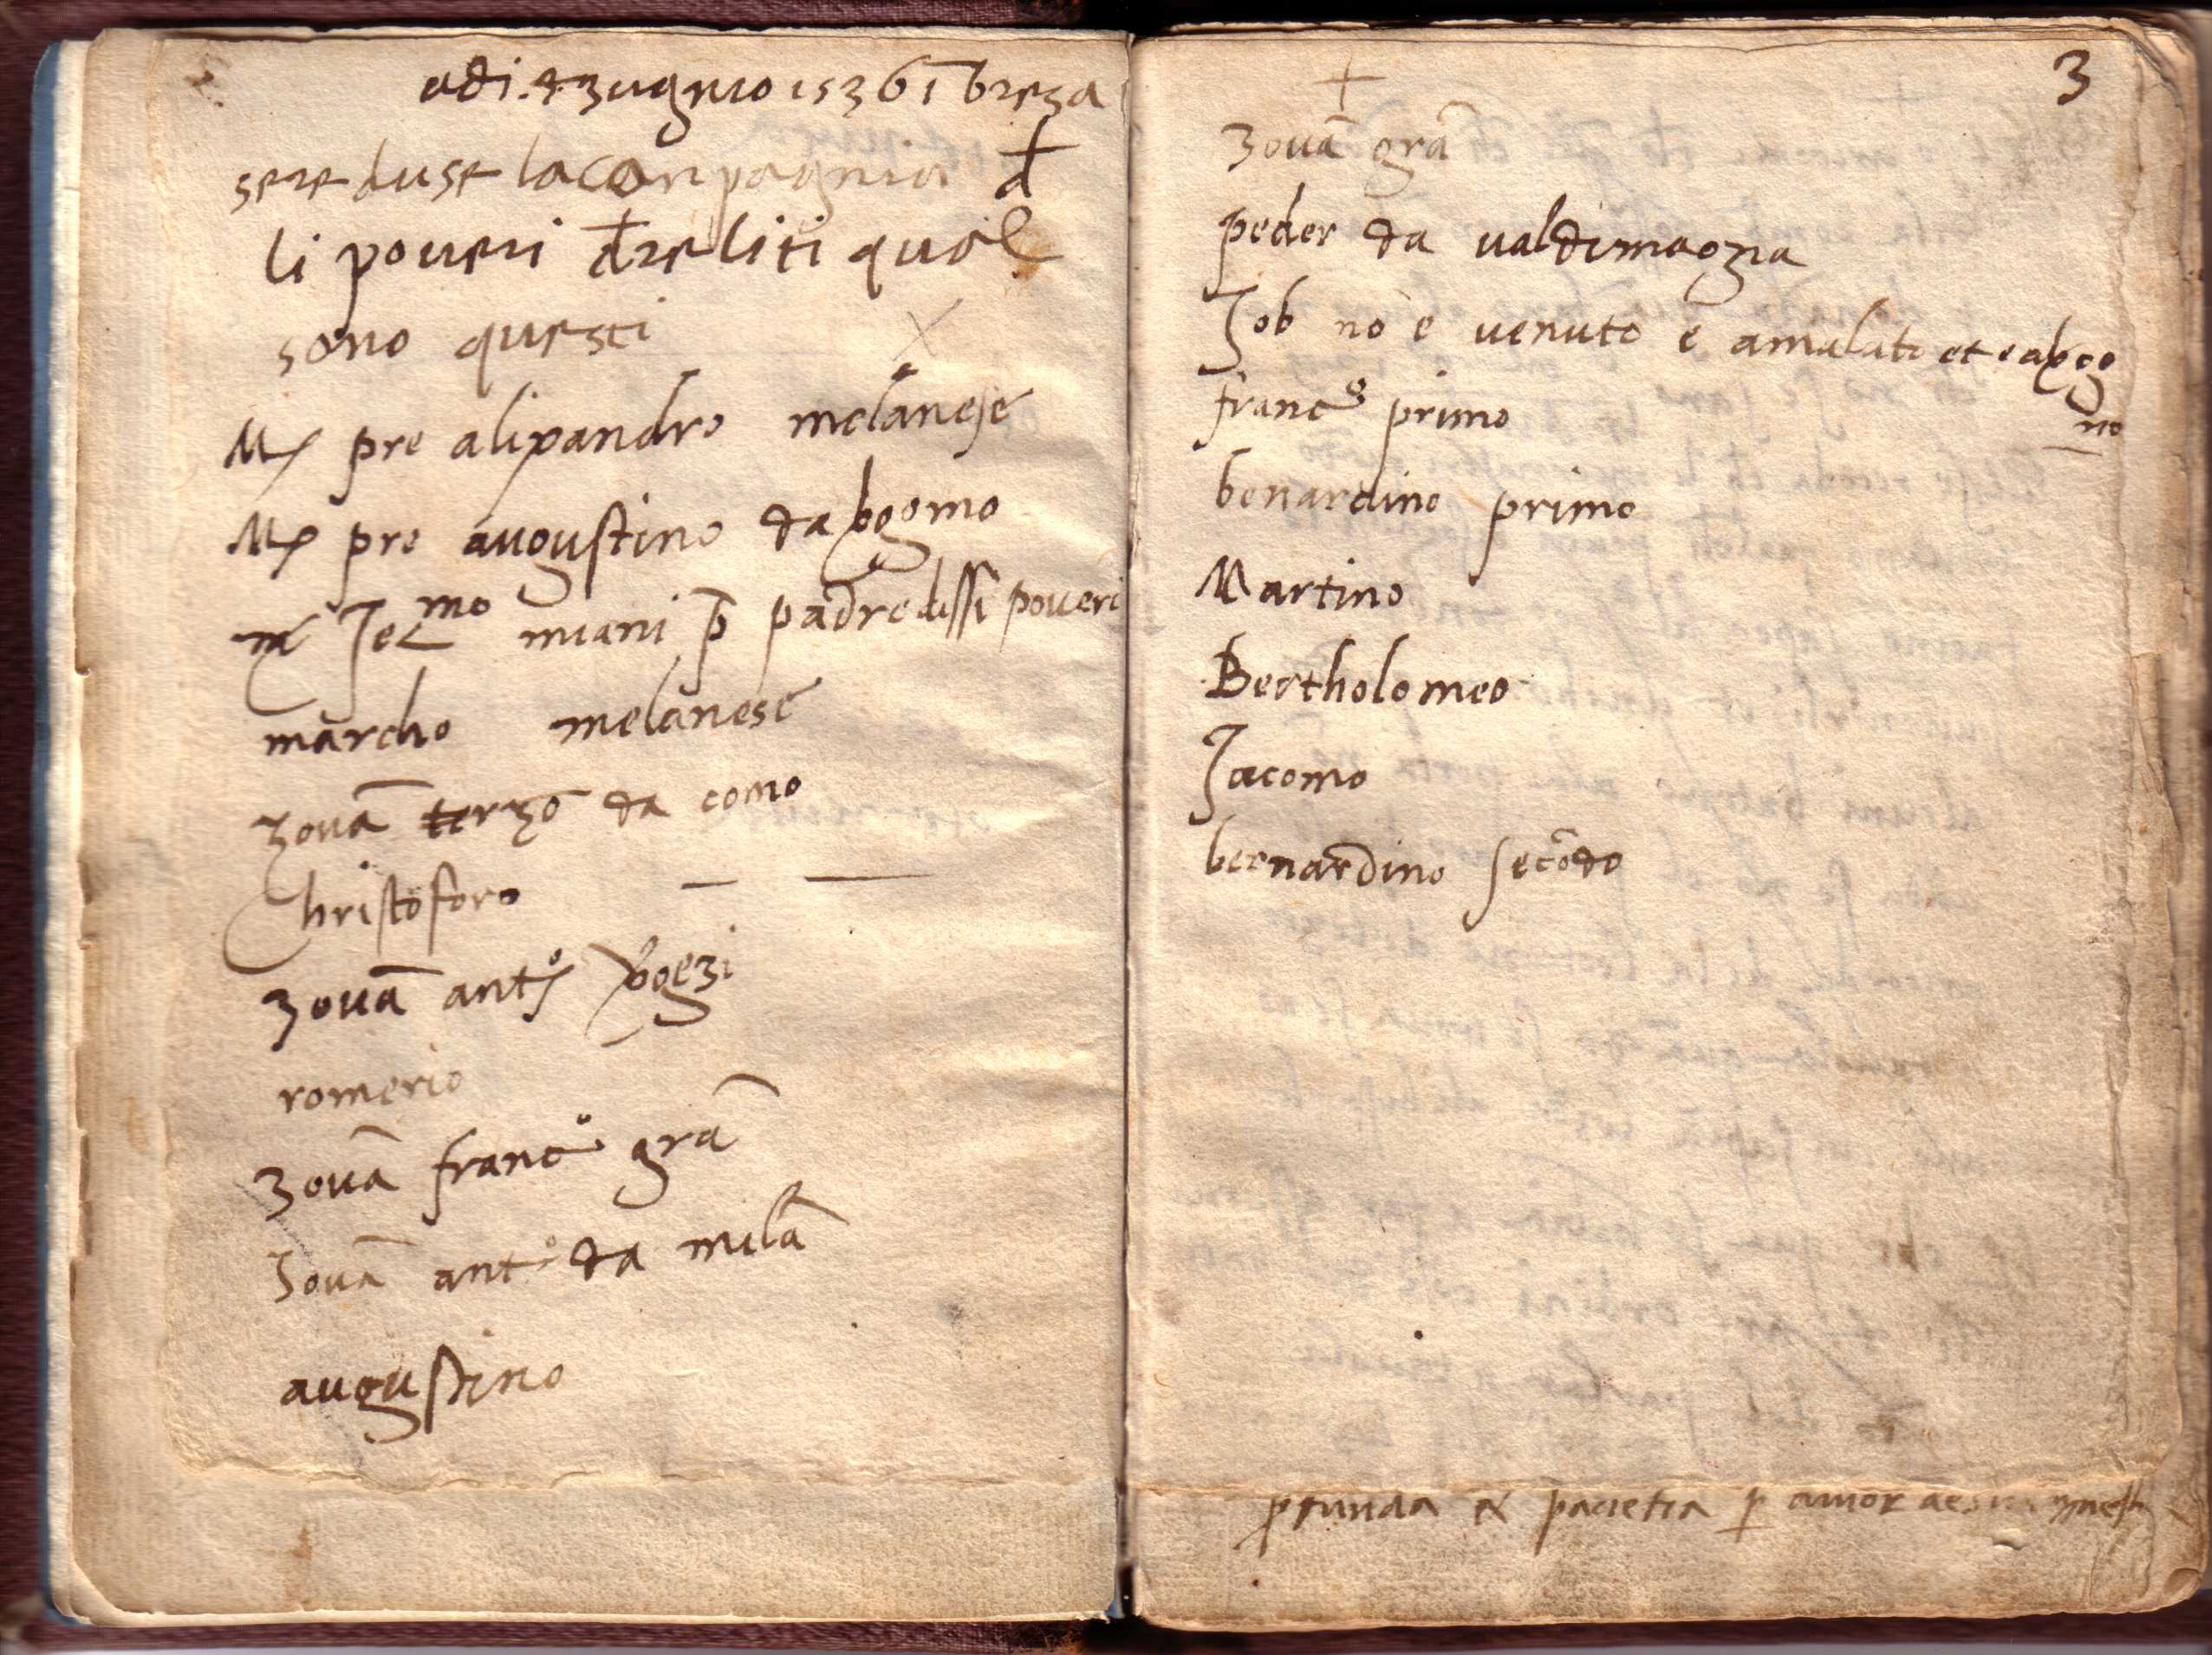 adi. 4 zugnio 1536 ī breza
se reduse la conpagnia đ
li poveri đreliti qual
sono questi
M pre alixandro melanese
M pre augustino da bgomo
m Jelmo miani p̄ padre delli poveri
marcho melanese
zouā terzo da como
Christoforo
zouā antº
romerio
zouā francº grā
Zouā antº da milā
augustino
3
+
Zouā grā
peder da ualdimagna
Job nō e uenuto e amalato et e a
no
francº primo
benardino primo
Martino
Bertholomeo
Jacomo
bernardino secōdo
pacietia p amor